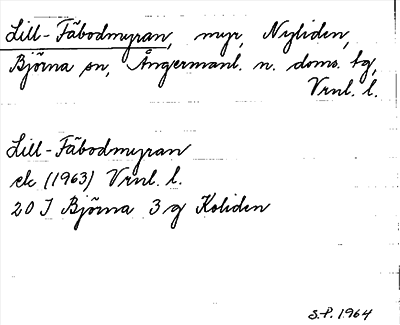 Lill-Fäbodmyran, myr, Nyliden,
Björna sn, Ångermanl. n. doms. tg,
Vrnl. l.
Lill-Fäbodmyran
ek (1963) Vrnl. l.
20 I Björna 3 g Koliden
S.P. 1964